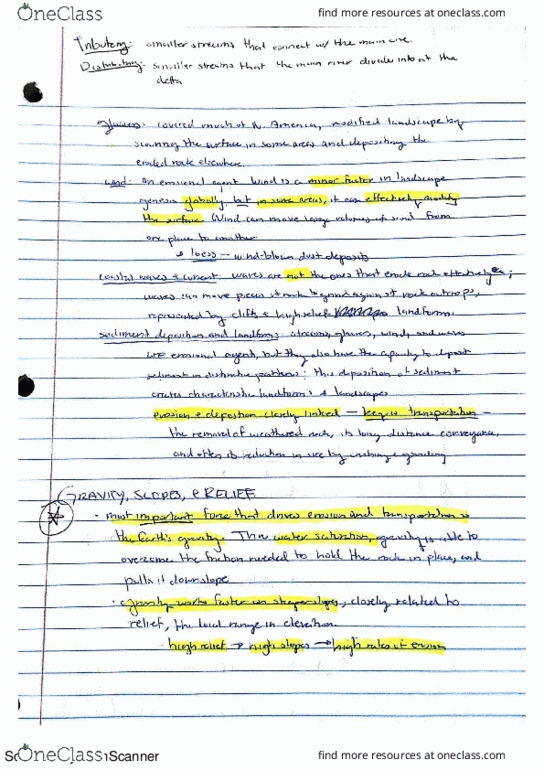 OneClass
find more resources at oneclass.com
Tributary: smaller streams that connect w/ the main one.
Distributary: smaller streams that the main river divides into at the
delta
glaciers: covered much of N. America, modified landscape by
scouring the surface in some areas and depositing the
eroded rock elsewhere.
wind: an erosional agent wind is a minor factor in landscape
genesis globally, but in some areas, it can effectively modify
the surface. Wind can move large volumes of sand from
one place to another
loess - wind-blown dust deposits
coastal waves & current: waves are not the ones that erode rock effectively;
waves can move pieces of rock beyond against rock outcrops,
represented by cliffs & high relief landforms
sediment deposition and landforms: streams, glaciers, wind, and waves
are erosional agent, but they also have the capacity to deposit
sediment in distinctive patterns; this deposition of sediment
creates characteristic landforms & landscapes
erosion & deposition closely linked - key is transportation -
the removal of weathered rock, its long distance conveyance,
and often its reduction in size by
GRAVITY, SLOPES, & RELIEF
• most important force that drives erosion and transportation is
the Earth's gravity. Thru water saturation, gravity is able to
overcome the friction needed to hold the rock in place, and
pulls it downslope
• gravity works faster on steeper slopes, closely related to
relief, the local range in elevation.
• high relief → high slopes → high rates of erosion
OneClass Scanner
find more resources at oneclass.com